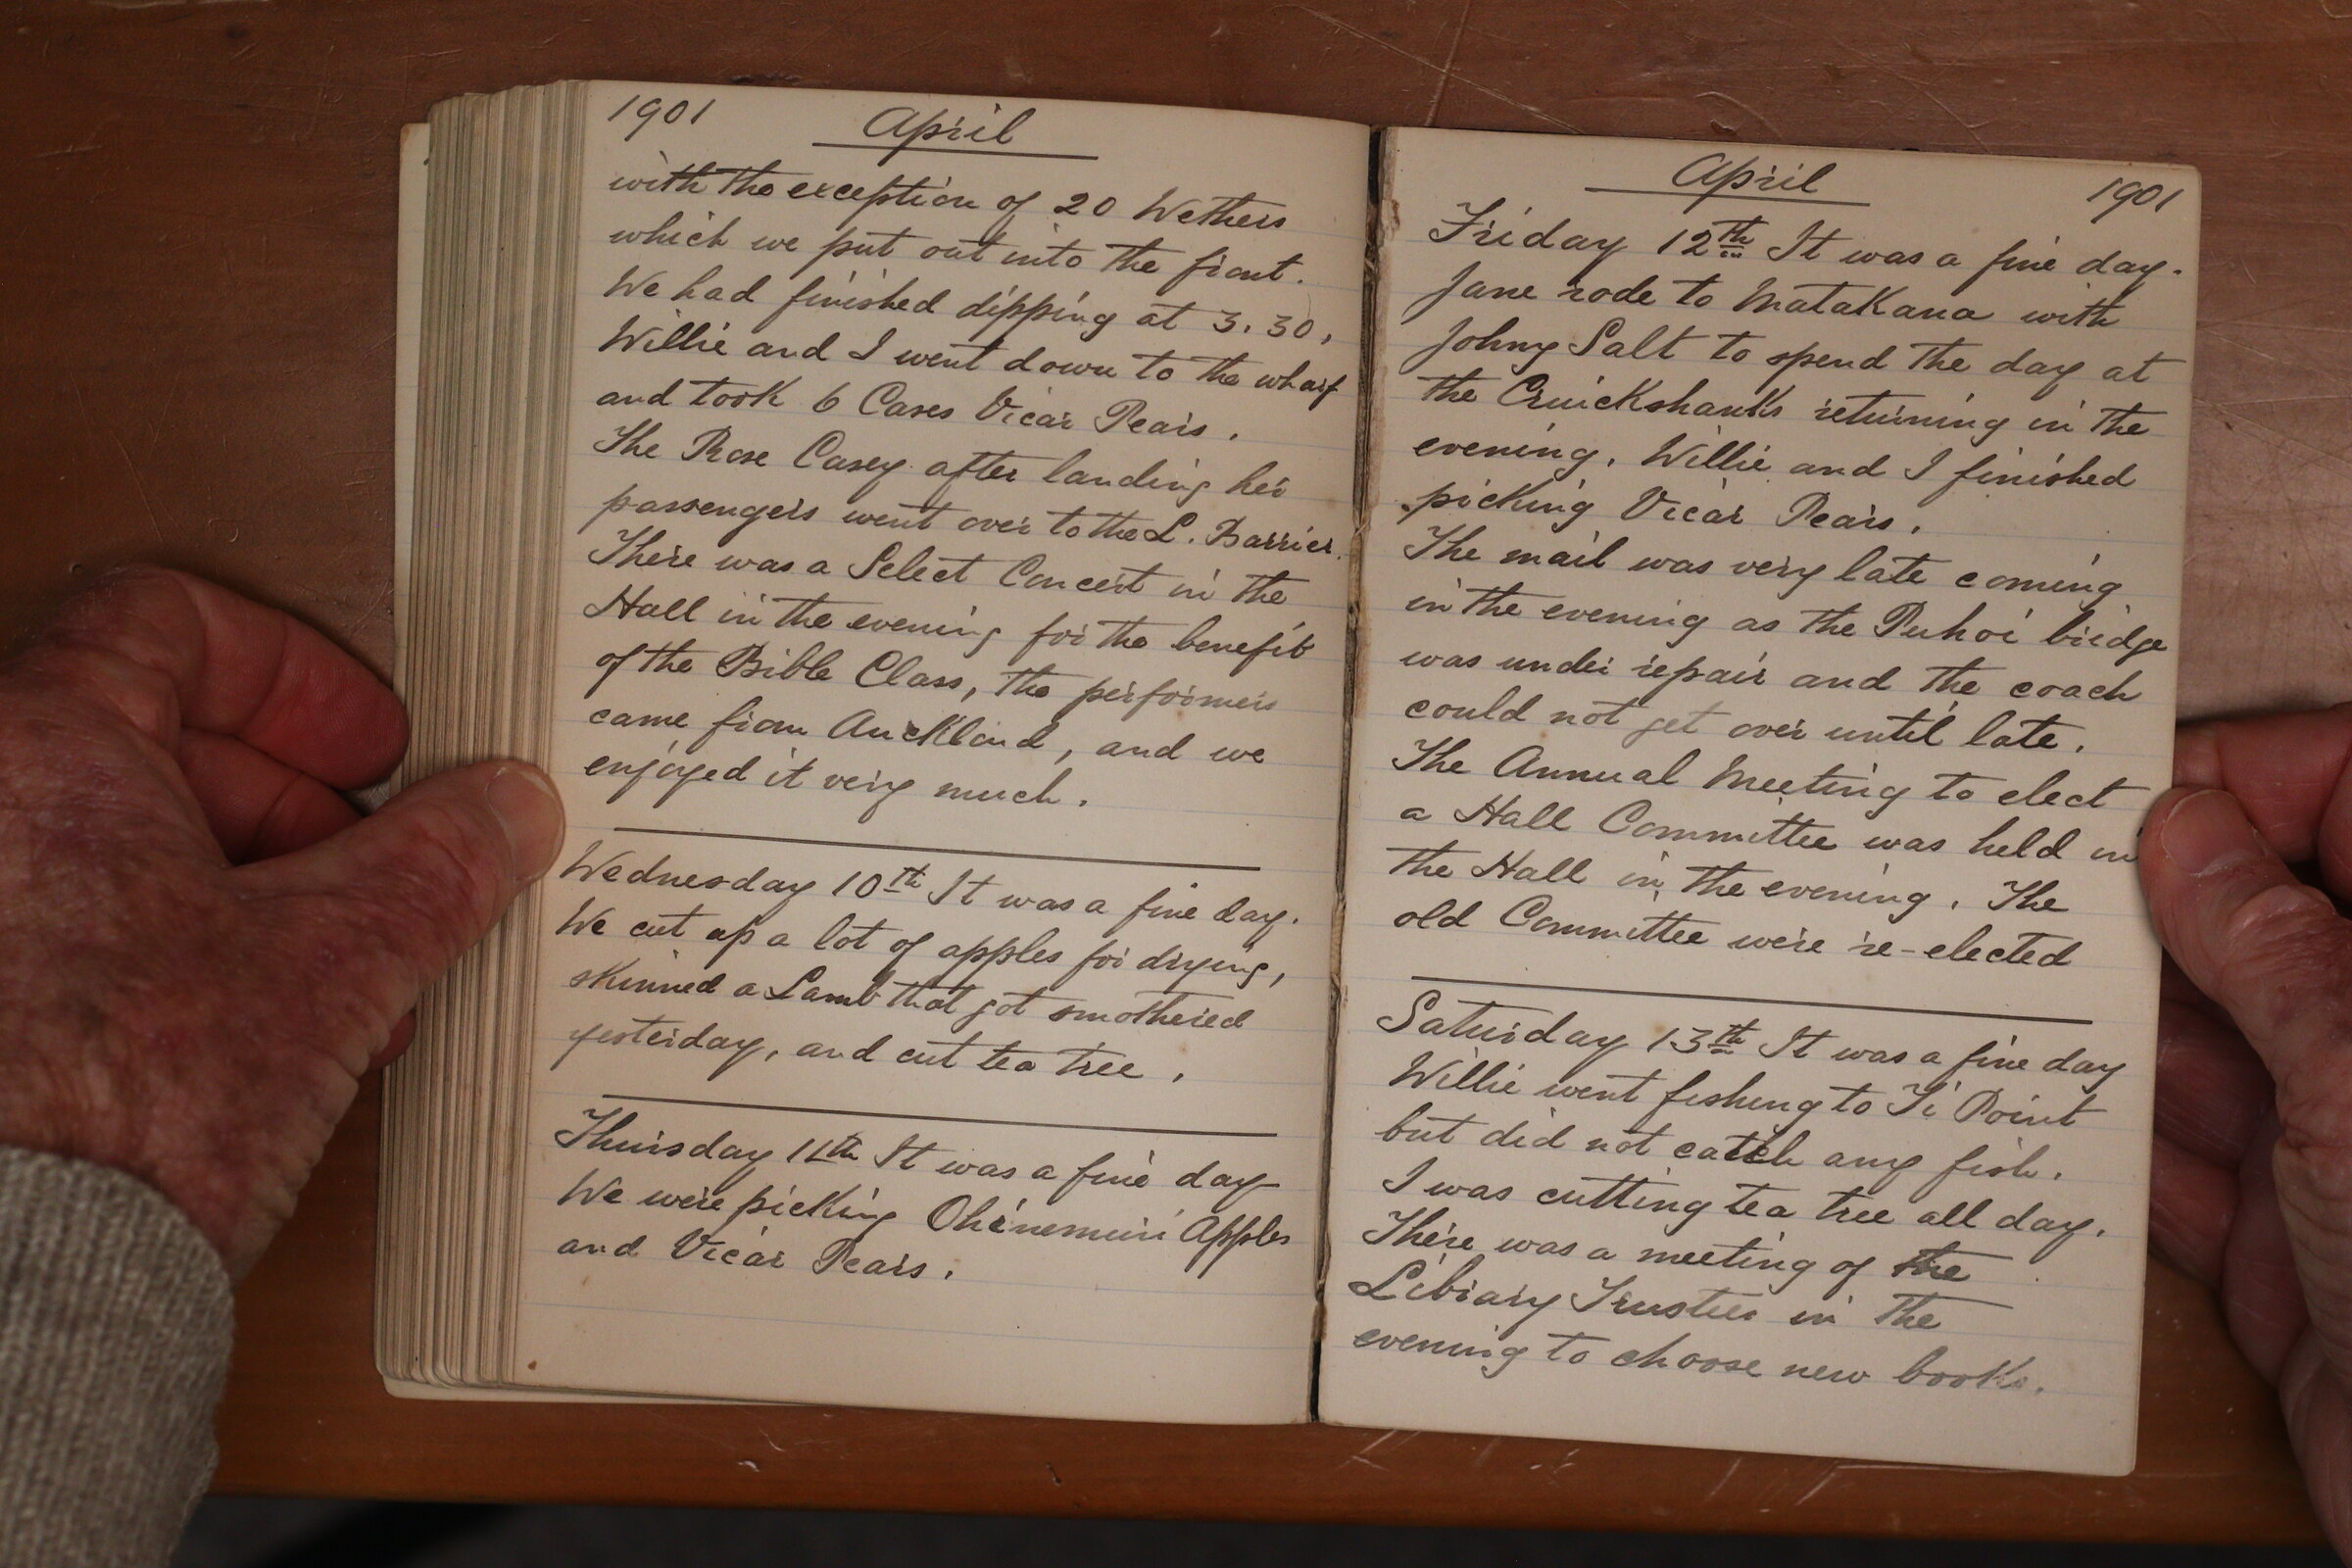 1901 April
with the exception of 20 Wethers
which we put out into the front.
We had finished dipping at 3.30,
Willie and I went down to the wharf
and took 6 Cases Vicar Pears.
The Rose Casey after landing her
passengers went over to the L. Barrier.
There was a Select Concert in the
Hall in the evening for the benefit
of the Bible Class, the performers
came from Auckland, and we
enjoyed it very much.
Wednesday 10th It was a fine day.
We cut up a lot of apples for drying,
skinned a Lamb that got smothered
yesterday, and cut tea tree.
Thursday 11th It was a fine day
We were picking Ohinemuri Apples
and Vicar Pears.
April 1901
Friday 12th It was a fine day.
Jane rode to Matakana with
Johny Salt to spend the day at
the Cruickshanks returning in the
evening. Willie and I finished
picking Vicar Pears.
The mail was very late coming
in the evening as the Puhoi bridge
was under repair and the coach
could not get over until late.
The Annual Meeting to elect
a Hall Committee was held in
the Hall in the evening. The
old Committee were re-elected
Saturday 13th It was a fine day
Willie went fishing to Ti Point
but did not catch any fish.
I was cutting tea tree all day.
There was a meeting of the
Library Trustees in the
evening to choose new books.